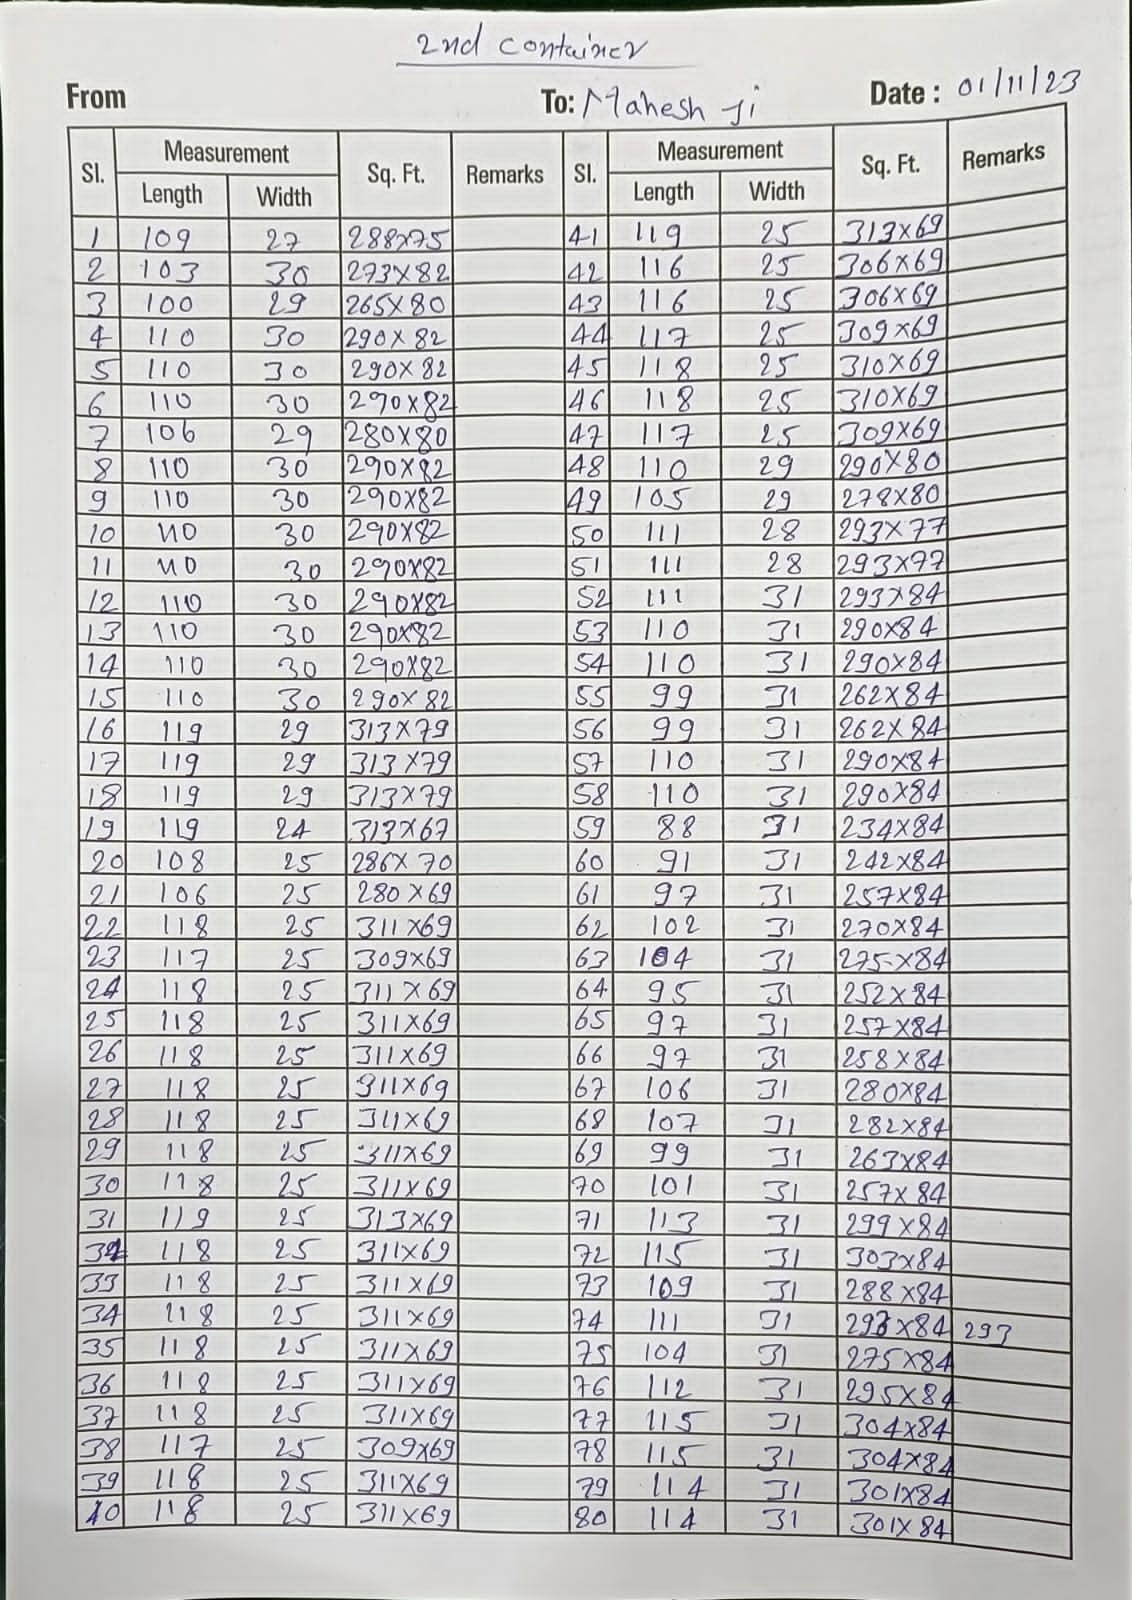 2nd container
From To: Mahesh Ji Date : 01/11/23
Sl. Measurement Sq. Ft. Remarks Sl. Measurement Sq. Ft. Remarks
Length Width Length Width
1 109 27 288x75 41 119 25 313x69
2 103 30 273x82 42 116 25 306x69
3 100 29 265x80 43 116 25 306x69
4 110 30 290x82 44 117 25 309x69
5 110 30 290x82 45 118 25 310x69
6 110 30 290x82 46 118 25 310x69
7 106 29 280x80 47 117 25 309x69
8 110 30 290x82 48 110 29 290x80
9 110 30 290x82 49 105 29 278x80
10 110 30 290x82 50 111 28 293x77
11 110 30 290x82 51 111 28 293x77
12 110 30 290x82 52 111 31 293x84
13 110 30 290x82 53 110 31 290x84
14 110 30 290x82 54 110 31 290x84
15 110 30 290x82 55 99 31 262x84
16 119 29 313x79 56 99 31 262x84
17 119 29 313x79 57 110 31 290x84
18 119 29 313x79 58 110 31 290x84
19 119 24 313x67 59 88 31 234x84
20 108 25 286x70 60 91 31 242x84
21 106 25 280x69 61 97 31 257x84
22 118 25 311x69 62 102 31 270x84
23 117 25 309x69 63 104 31 275x84
24 118 25 311x69 64 95 31 252x84
25 118 25 311x69 65 97 31 257x84
26 118 25 311x69 66 97 31 258x84
27 118 25 311x69 67 106 31 280x84
28 118 25 311x69 68 107 31 282x84
29 118 25 311x69 69 99 31 263x84
30 118 25 311x69 70 101 31 257x84
31 119 25 313x69 71 113 31 299x84
32 118 25 311x69 72 115 31 303x84
33 118 25 311x69 73 109 31 288x84
34 118 25 311x69 74 111 31 293x84 293
35 118 25 311x69 75 104 31 275x84
36 118 25 311x69 76 112 31 295x84
37 118 25 311x69 77 115 31 304x84
38 117 25 309x69 78 115 31 304x84
39 118 25 311x69 79 114 31 301x84
40 118 25 311x69 80 114 31 301x84